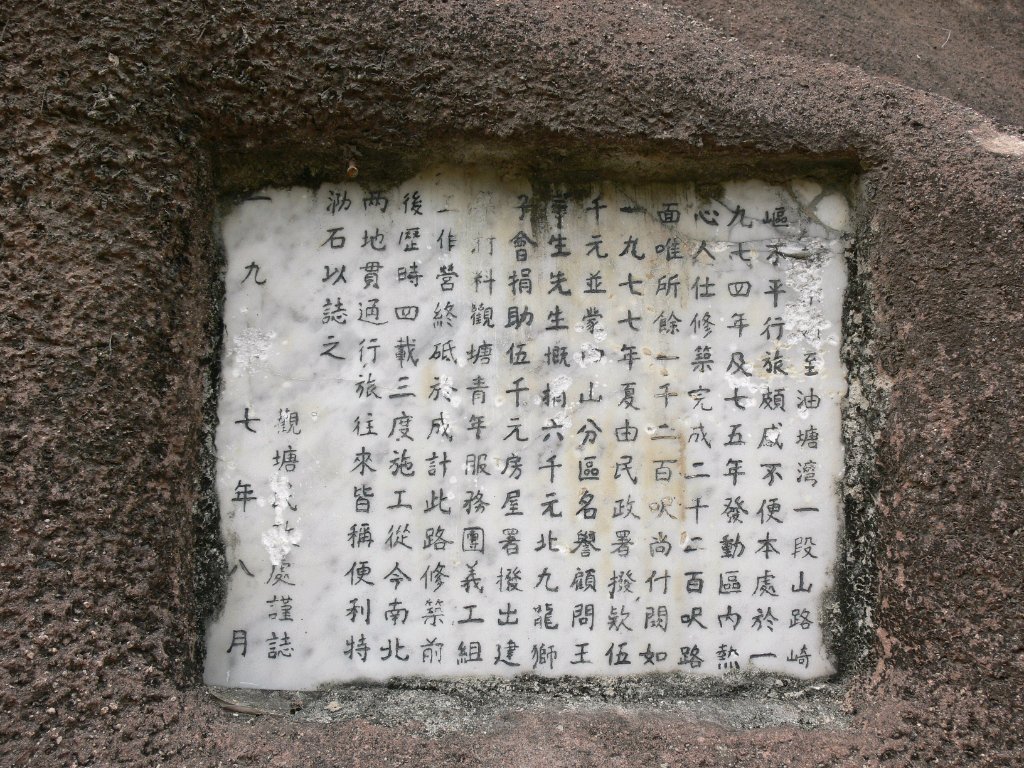 至油塘湾一段山路崎
嶇不平行旅頗感不便本處於一
九七四年及七五年發動區內熱
心人仕修築完成二千二百呎路
面唯所餘一千二百呎尚付闕如
一九七七年夏由民政署撥欵伍
千元並蒙山分區名譽顧問王
華生先生慨捐六千元北九龍獅
子會捐助伍千元房屋署撥出建
料觀塘青年服務團義工組
工作營終砥於成計此路修築前
後歷時四載三度施工從今南北
兩地貫通行旅往來皆稱便利特
泐石以誌之
觀塘民政處謹誌
一九七年八月